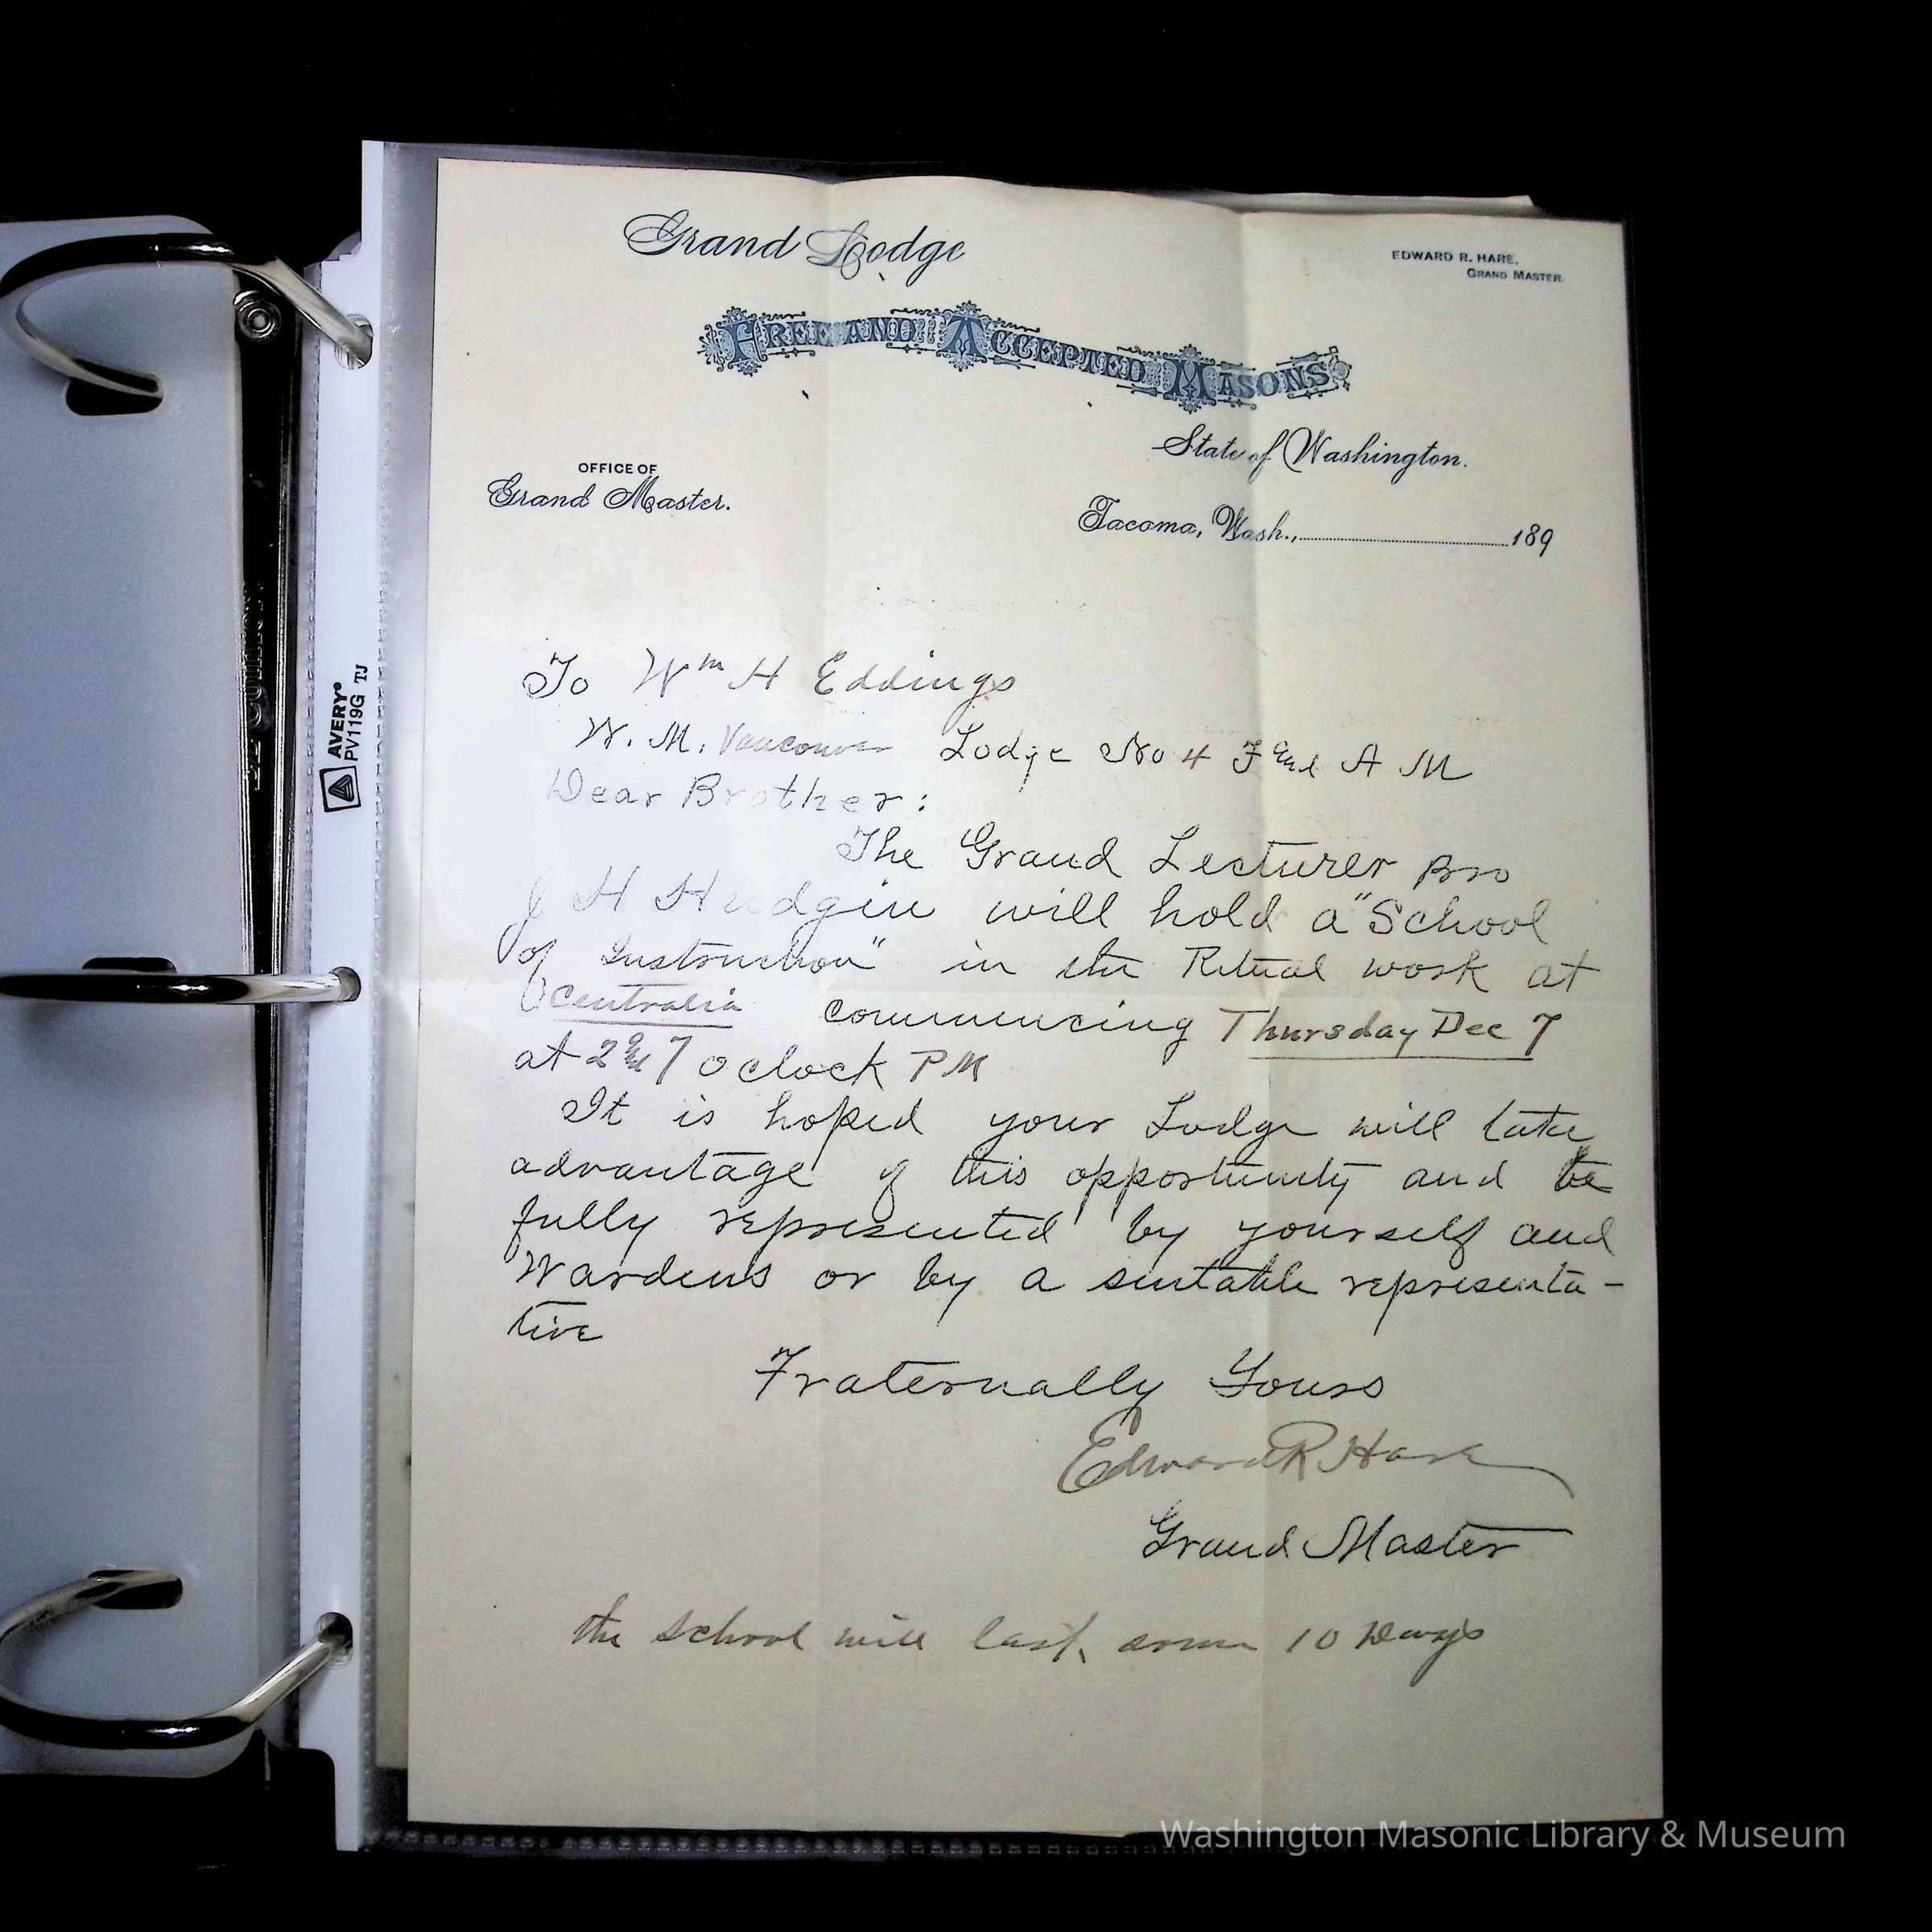 Grand Lodge
EDWARD R. HARE,
GRAND MASTER
FREE AND ACCEPTED MASONS
State of Washington.
OFFICE OF
Grand Master.
Tacoma, Wash., 189
To Wm H Eddings
W. M. Vancouver Lodge No 4 F and A M
Dear Brother:
The Grand Lecturer Bro
J H Hudgin will hold a "School
of Instruction" in the Ritual work at
Centralia commencing Thursday Dec 7
at 2 and 7 o clock PM
It is hoped your Lodge will take
advantage of this opportunity and be
fully represented by yourself and
Wardens or by a suitable representa-
tive
Fraternally Yours
Edward R Hare
Grand Master
the school will last some 10 Days
AVERY®
PV119G TJ
Washington Masonic Library & Museum